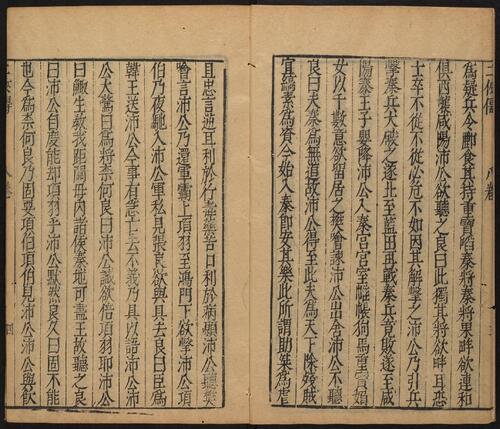 為疑兵令酈食其持重寶啗秦將秦將果畔欲連和
俱西襲咸陽沛公欲聽之良曰此獨其將欲畔耳恐
士卒不從不從必危不如因其解擊之沛公乃引兵
擊秦兵大破之遂北至藍田再戰秦兵竟敗遂至咸
陽秦王子嬰降沛公入秦宮宮室帷帳狗馬重寶婦
女以千數意欲留居之樊噲諫沛公出舍沛公不聽
良曰夫秦為無道故沛公得至此夫為天下除殘賊
宜縞素為資今始入秦即安其樂此所謂助桀為虐
且忠言逆耳利於行毒藥苦口利於病願沛公聽樊
噲言沛公乃還軍霸上項羽至鴻門下欲擊沛公項
伯乃夜馳入沛公軍私見張良欲與具去良曰臣為
韓王送沛公今事有急亡去不義乃具以語沛公沛
公大驚曰為將奈何良曰沛公誠欲倍項羽耶沛公
曰鯫生教我距關毋內諸侯秦地可盡王故聽之良
曰沛公自度能卻項羽乎沛公默然良久曰固不能
也今為奈何良乃固要項伯項伯見沛公沛公與飲